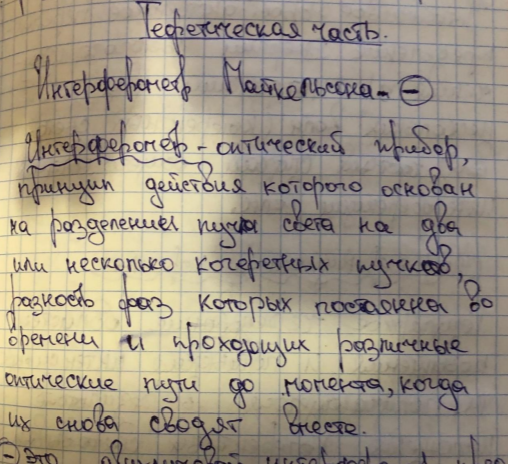 Теоретическая часть.
Интерферометр Майкельсона - ⊖
Интерферометр - оптический прибор,
принцип действия которого основан
на разделении пучка света на два
или несколько когеретных пучков,
разность фаз которых постоянна во
времени и проходящих различные
оптические пути до момента, когда
их снова сводят вместе.
⊖ это